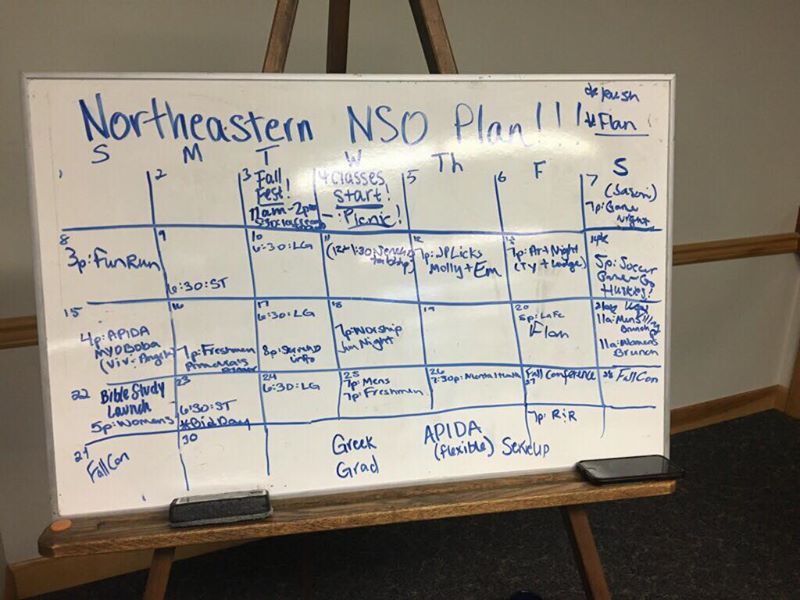 Northeastern NSO Plan!!!
* Flan
S M T W Th F S
1
2
3 Fall Fest!
11am-2pm
4 Classes start!
Picnic!
5
6
7 (Jason)
7p: Game Night
8
3p: Fun Run
9
6:30: ST
10
6:30: LG
11
12
7p: JP Licks
Molly + Em
13
7p: Art Night
14
5p: Soccer
Game Go
Huskies!
15
4p: APIDA
MYO Boba
16
7p: Freshmen
17
6:30: LG
18
7p: Worship
Night
19
20
5p: LaFe
Flan
21
11a: Mens
Brunch
11a: Womens
Brunch
22
Bible Study
Launch
5p: Womens
23
6:30: ST
* Bid Day
24
6:30: LG
25
7p: Mens
7p: Freshmen
26
7:30p: Mental Health
27
Fall Conference
7p: R:R
28 FallCon
29
FallCon
30
Greek
Grad
APIDA
(flexible)
ServeUp